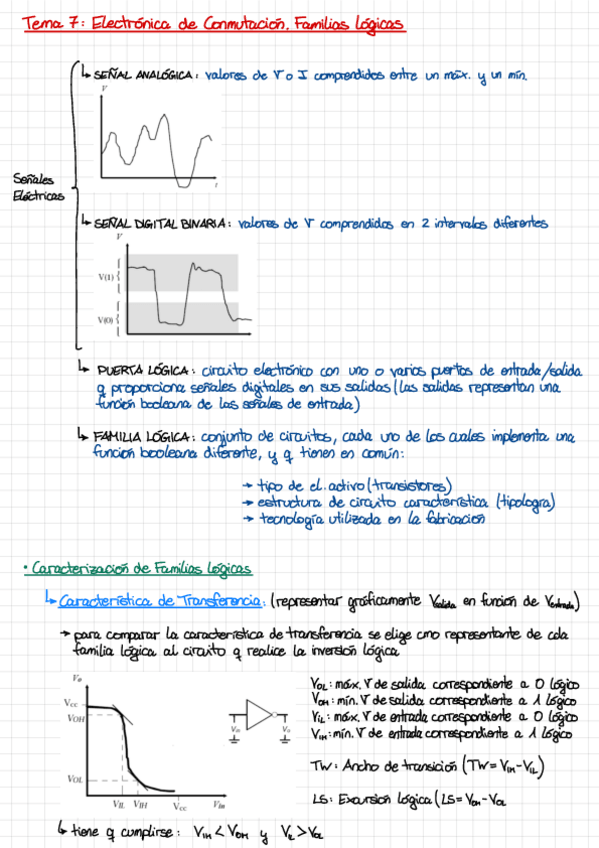 Tema 7: Electrónica de Conmutación. Familias lógicas
SEÑAL ANALÓGICA: valores de V o I comprendidos entre un máx. y un mín.
V
t
Señales
Eléctricas
SEÑAL DIGITAL BINARIA: valores de V comprendidos en 2 intervalos diferentes
V
V(1)
V(0)
PUERTA LÓGICA: circuito electrónico con uno o varios puertos de entrada/salida
q proporciona señales digitales en sus salidas (las salidas representan una
función booleana de las señales de entrada)
FAMILIA LÓGICA: conjunto de circuitos, cada uno de los cuales implementa una
función booleana diferente, y q tienen en común:
→ tipo de el. activo (transistores)
→ estructura de circuito característica (tipología)
→ tecnología utilizada en la fabricación
· Caracterización de Familias lógicas
Característica de Transferencia: (representar gráficamente Vsalida en función de Ventrada)
→ para comparar la característica de transferencia se elige cmo representante de cda
familia lógica al circuito q realice la inversión lógica
Vo
Vcc
VOH
VOL
VIL VIH Vcc Vin
Vin Vo
VOL: máx. V de salida correspondiente a 0 lógico
VOH: mín. V de salida correspondiente a 1 lógico
VIL: máx. V de entrada correspondiente a 0 lógico
VIH: mín. V de entrada correspondiente a 1 lógico
TW: Ancho de transición (TW = VIH - VIL)
LS: Excursión lógica (LS = VOH - VOL
tiene q cumplirse: VIH < VOH y VIL > VOL